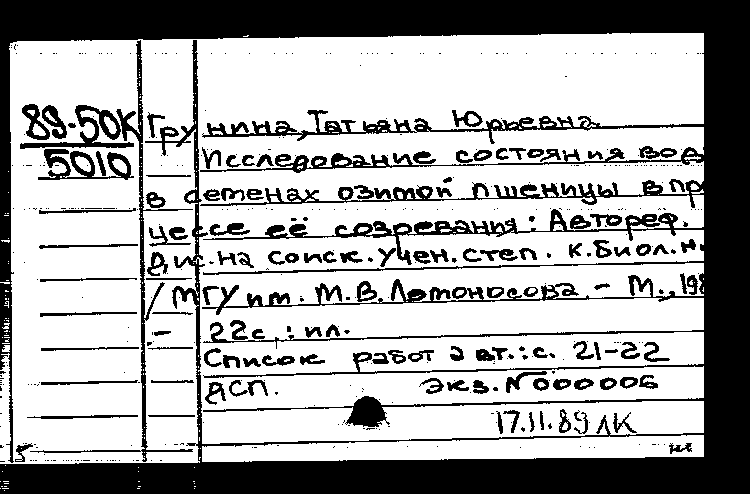 89-50К Грунина, Татьяна Юрьевна.
5010 Исследование состояния вод
в семенах озимой пшеницы в про
цессе её созревания: Автореф.
Дис. на соиск. учен. степ. к. биол. н.
/МГУ им. М.В. Ломоносова. - М., 198
- 22с.: ил.
Список работ авт.: с. 21-22
ДСП. Экз. N000006
17.11.89 ЛК
5